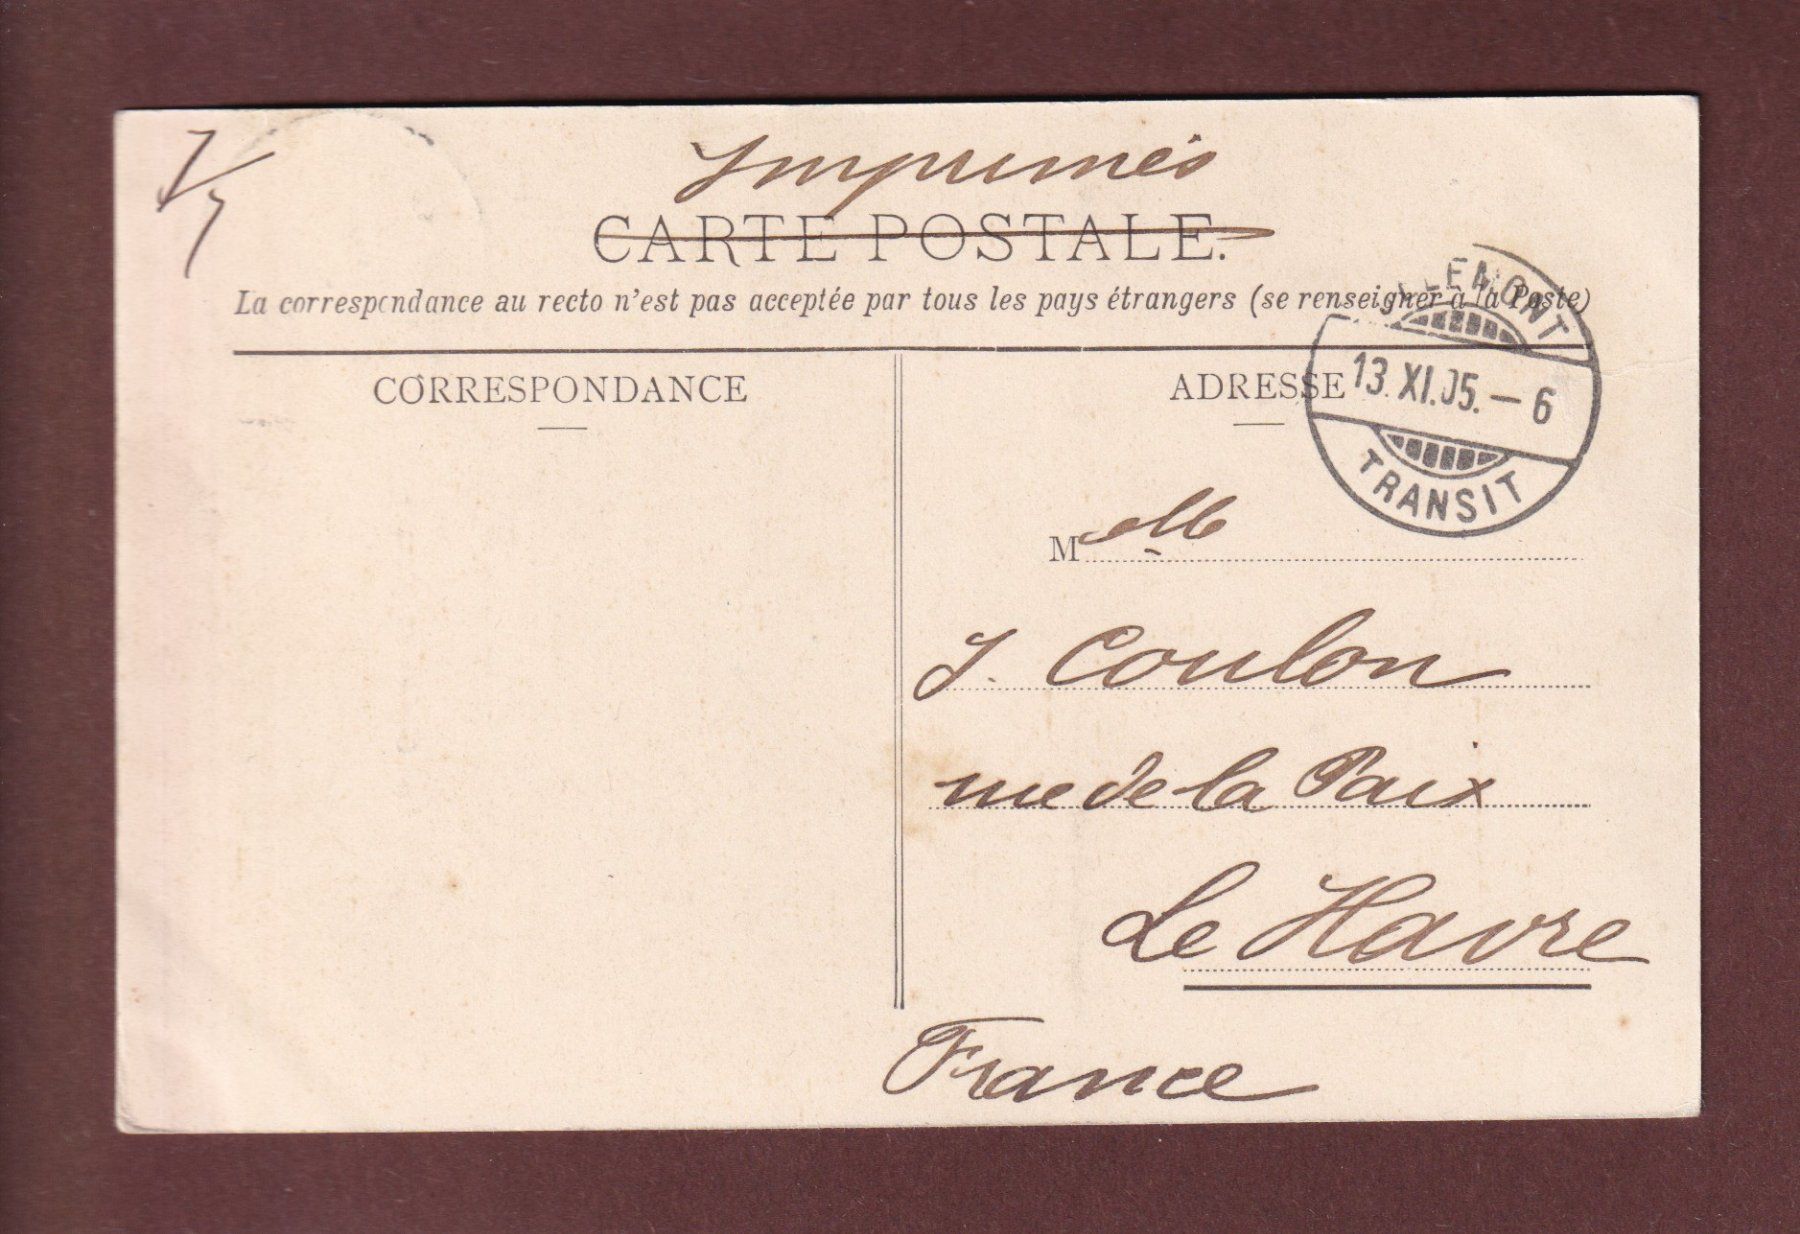 Imprimés
CARTE POSTALE.
La correspondance au recto n'est pas acceptée par tous les pays étrangers (se renseigner à la Poste)
CORRESPONDANCE
ADRESSE
LEMONT
13.XI.05.-6
TRANSIT
Melle
J. Coulon
rue de la Paix
Le Havre
France